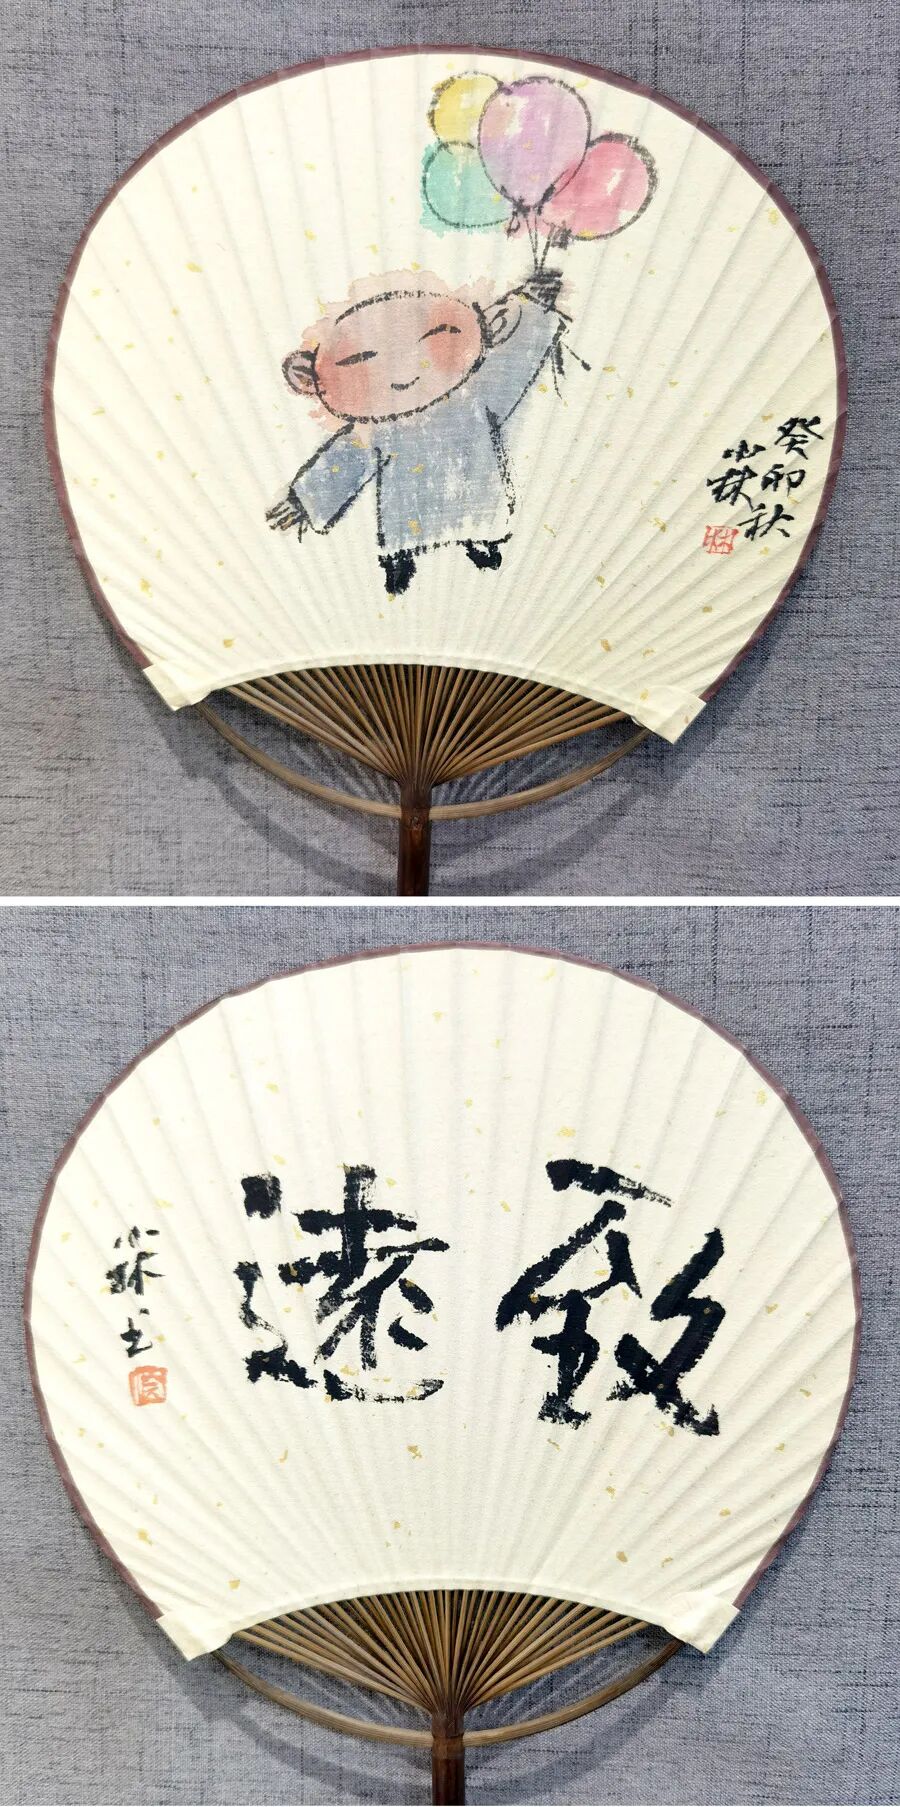 癸卯秋
小林
致遠
小林书